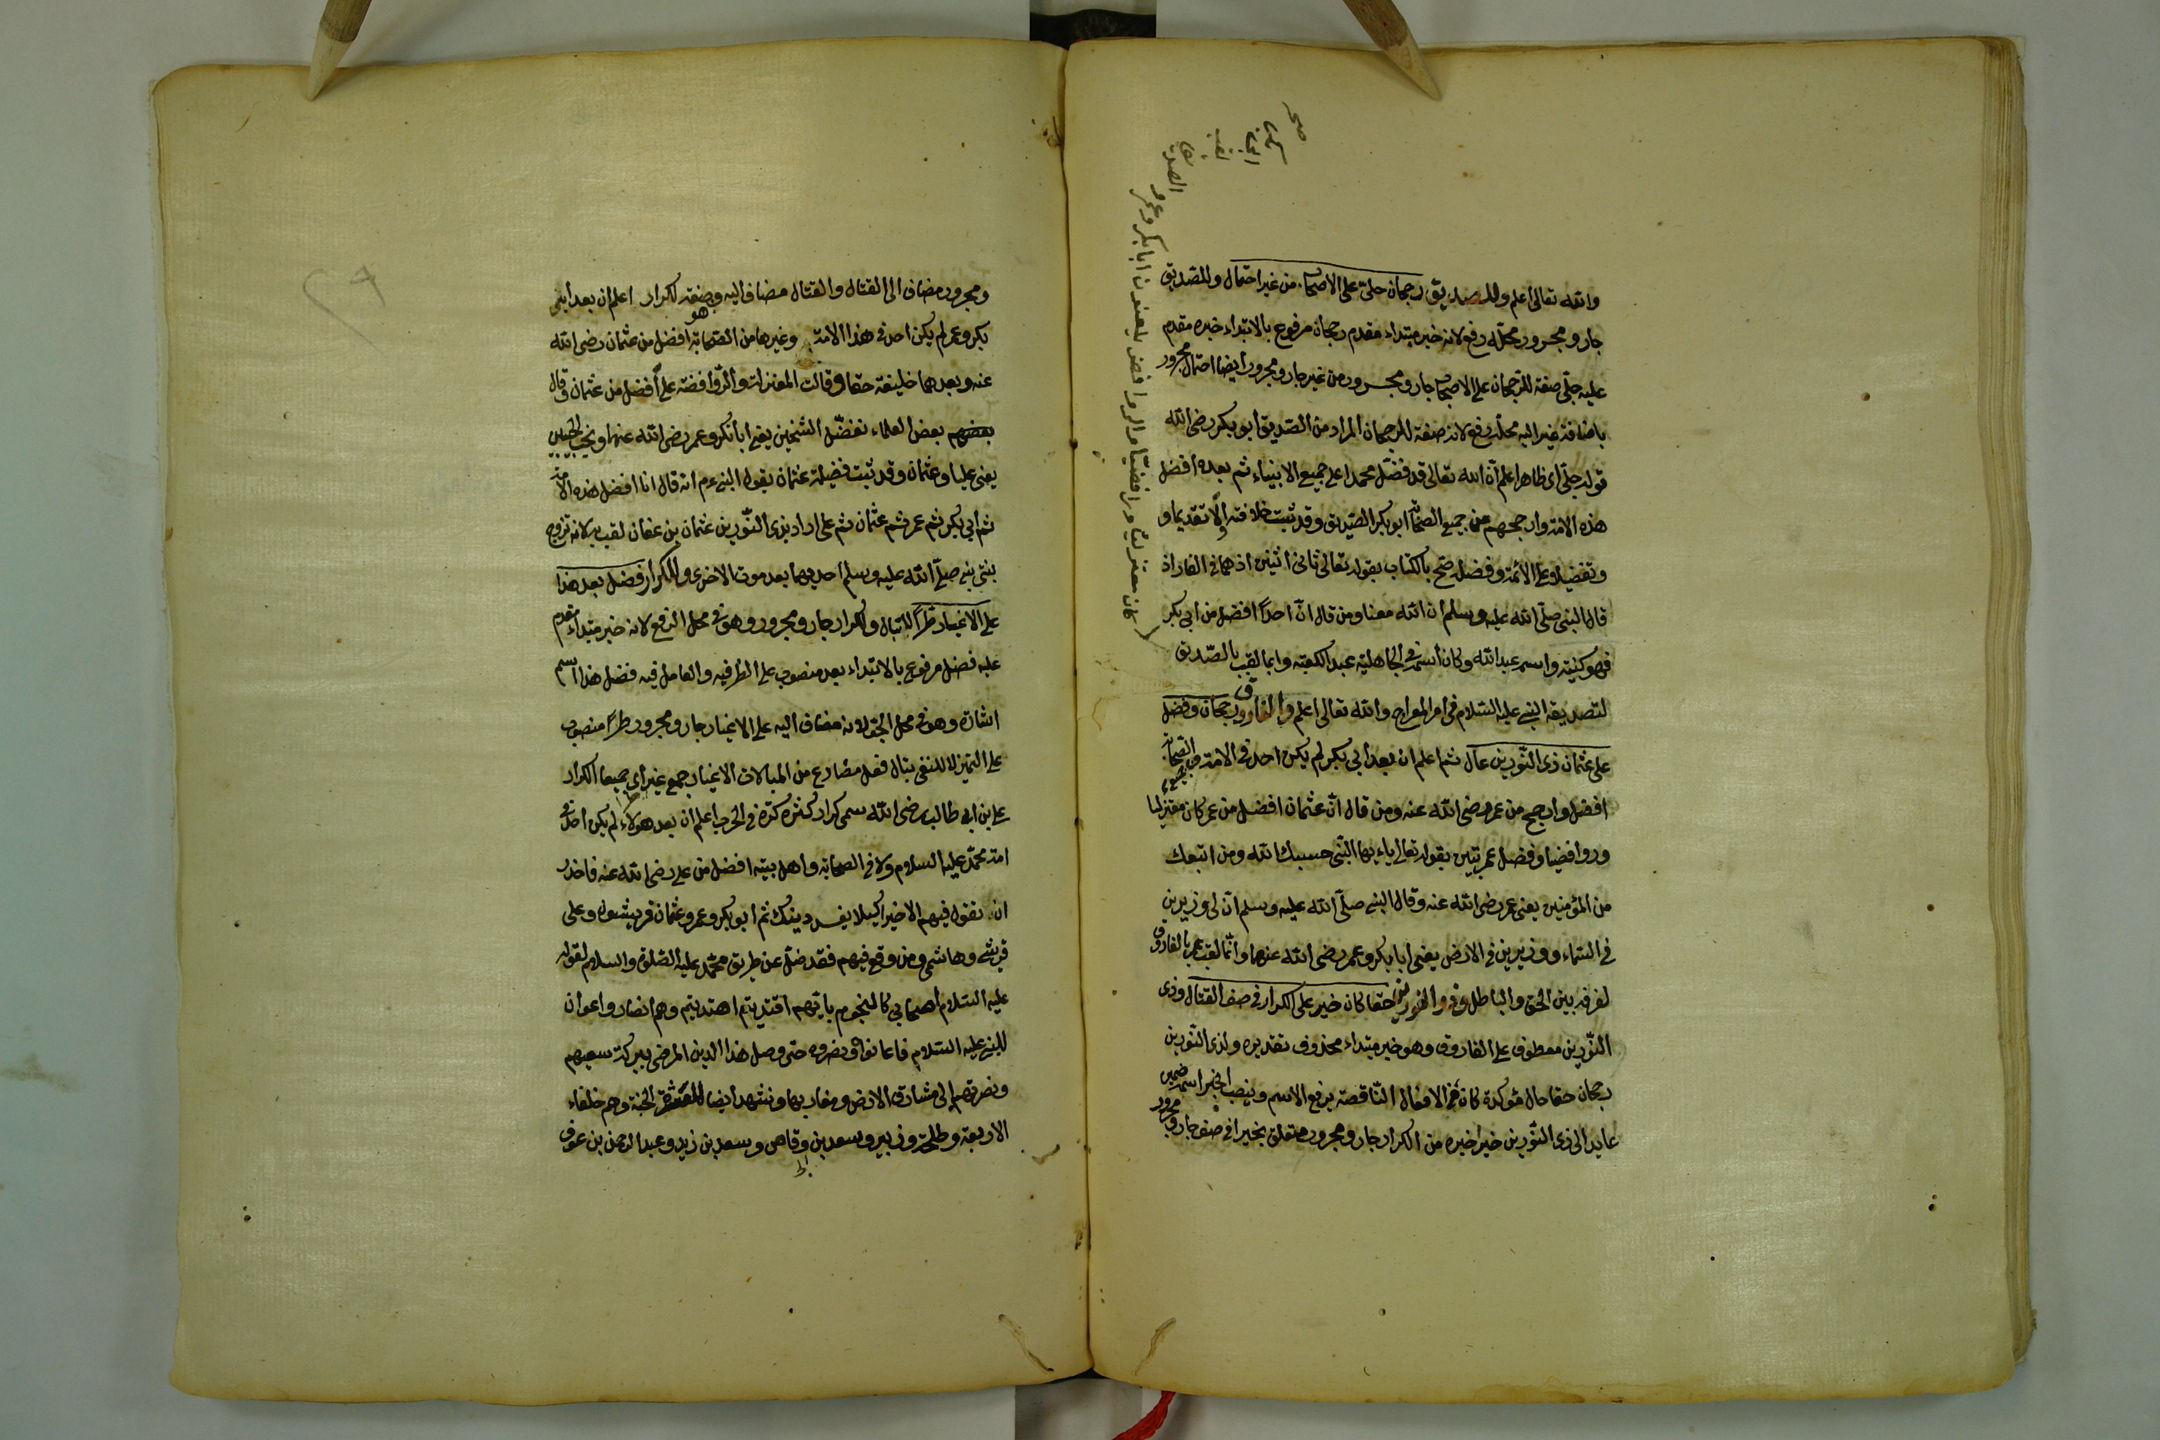 والله تعالى اعلم وللصديق رجحان جلى على الاصحاب من غير احتمال وللصديق
جار ومجرور محله رفع لانه خبر مبتداء مقدم رجحان مرفوع بالابتداء خبره مقدم
عليه جلى صفة للرجحان على الاصحاب جار ومجرور من غير جار ومجرور ايضا احتمال مجرور
باضافة غير اليه محله رفع لانه صفة للرجحان المراد من الصديق ابو بكر رضى الله
قوله جلى اى ظاهر اعلم ان الله تعالى قد فضل محمدا على جميع الانبياء ثم بعده افضل
هذه الامة وارجحهم من جميع الصحابة ابو بكر الصديق وقد ثبت خلافته تقديما و
وتفضيلا على الائمة وفضله صح بالكتاب بقوله تعالى ثانى اثنين اذ هما فى الغار اذ
قال النبى صلى الله عليه وسلم ان الله معنا ومن قال ان احدا افضل من ابى بكر
كان معتزليا ورافضيا والروافض يلعنون ابا بكر وعمر و
فهو كنيته واسمه عبد الله وكان اسمه فى الجاهلية عبد الكعبة وانما لقب بالصديق
لتصديقه النبى عليه السلام فى امر المعراج والله تعالى اعلم وللفاروق رجحان وفضل
على عثمان ذى النورين عال ثم اعلم ان بعد ابى بكر لم يكن احد فى الامة الصحابة
افضل وارجح من عمر رضى الله عنه ومن قال ان عثمان افضل من عمر كان معتزليا
وروافضيا وفضل عمر تبين بقوله تعالى ياءيها النبى حسبك الله ومن اتبعك
من المؤمنين يعنى عمر رضى الله عنه وقال النبى صلى الله عليه وسلم ان لى وزيرين
فى السماء ووزيرين فى الارض يعنى ابا بكر وعمر رضى الله عنهما وانما لقب عمر بالفاروق
لفرقه بين الحق والباطل وذو النورين حقا كان خير على الكرار فى صف القتال وذى
النورين معطوف على الفاروق وهو خبر مبتداء محذوف تقديره ولذى النورين
رجحان حقا حال مؤكدة كان من الافعال الناقصة يرفع الاسم وينصب الخبر اسمه ضمير
عايد الى ذى النورين خير خبره من الكرار جار ومجرور متعلق بخير فى صف جار ومجرور
ومجرور مضاف الى القتال والقتال مضاف اليه وصفة لكرار اعلم ان بعد ابى
بكر وعمر لم يكن احد فى هذا الامة وغيرها من الصحابة هو افضل من عثمان رضى الله
عنه وبعدهما خليفة حقا وقالت المعتزلة والروافضة على افضل من عثمان وقال
بعضهم بعض العلماء نفضل الشيخين يعنى ابا بكر وعمر رضى الله عنهما ونحب
يعنى عليا وعثمان وقد ثبت فضيلة عثمان بقوله النبى عم انه قال انا افضل هذه الامة
ثم ابى بكر ثم عمر ثم عثمان ثم على اراد بذى النورين عثمان بن عفان لقب به لانه تزوج
بنتى نبى صلى الله عليه وسلم احديهما بعد موت الاخرى وللكرار فضل بعد هذا
على الاغيار طرا لا تبال وللكرار جار ومجرور وهو فى محل الرفع لانه خبر مبتداء مقدم
عليه فضل مرفوع بالابتداء بعد منصوب على الظرفيه والعامل فيه فضل هذا اسم
اشارة وهو فى محل الجر لانه مضاف اليه على الاغيار جار ومجرور طرا منصوب
على التميز لا للنفى تبال فعل مضارع من المبالات الاغيار جمع غير اى جميعا الكرار
على بن ابى طالب رضى الله سمى كرار كثرة كرة فى الحرب اعلم ان بعد هولاء لم يكن احد فى
امة محمد عليه السلام ولا فى الصحابة واهل بيته افضل من على رضى الله عنه فاحذر
ان تقول فيهم الا خيرا كيلا يفسد دينك ثم ابو بكر وعمر وعثمان قريشون وعلى
قريشى وهاشمى ومن وقع فيهم فقد ضل عن طريق محمد عليه الصلوة والسلام لقوله
عليه السلام اصحابى كالنجوم بايهم اقتديتم اهتديتم وهم انصار واعوان
للنبى عليه السلام فاعانوا ونصروه حتى وصل هذا الدين المرضى ببركة سعيهم
ونصرتهم الى مشارق الارض ومغاربها ونشهد ايضا للعشرة الجنة وهم خلفاء
الاربعة وطلحة وزبير وسعد بن وقاص وسعد بن زيد وعبد الرحمن بن عوف